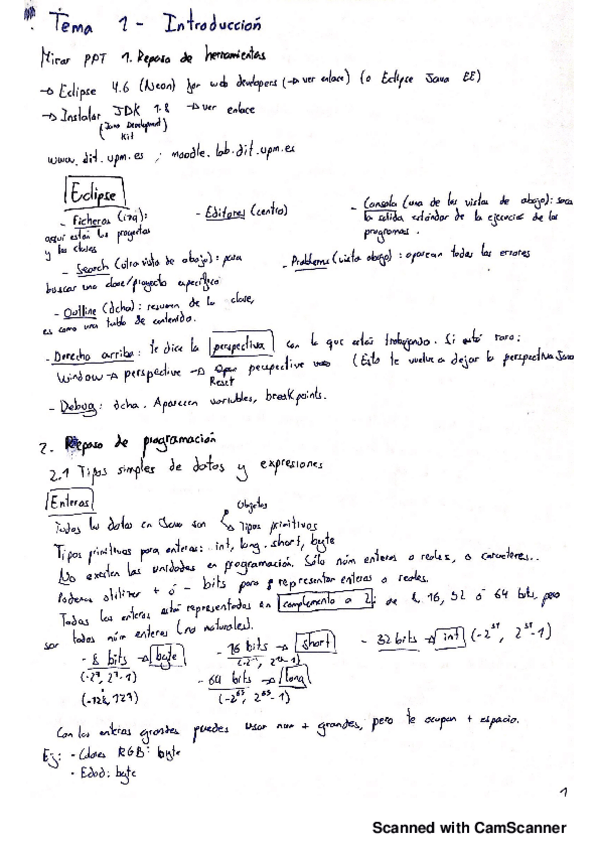 Tema 1 - Introducción
Mirar PPT 1. Repaso de herramientas
→ Eclipse 4.6 (Neon) for web developers (→ ver enlace) (o Eclipse Java EE)
→ Instalar JDK 1.8 → ver enlace
(Java Development Kit)
www.dit.upm.es ; moodle.lab.dit.upm.es
Eclipse
- Ficheros (izq): aquí están los proyectos y las clases
- Editores (centro)
- Consola (una de las vistas de abajo): saca la salida estándar de la ejecución de los programas.
- Search (otra vista de abajo): para buscar una clase/proyecto específico
- Problems (vista abajo): aparecen todos los errores
- Outline (dcha): resumen de la clase, es como una tabla de contenido.
- Derecho arriba: te dice la perspectiva con la que estás trabajando. Si está raro:
Window → perspective → Reset perspective (Esto te vuelve a dejar la perspectiva Java
- Debug: dcha. Aparecen variables, breakpoints.
2. Repaso de programación
2.1 Tipos simples de datos y expresiones
Enteros
Todos los datos en Java son Objetos
Tipos primitivos
Tipos primitivos para enteros: int, long, short, byte
No existen las unidades en programación. Sólo núm enteros o reales, o caracteres..
Podemos utilizar + ó - bits para representar enteros o reales.
Todos los enteros están representados en complemento a 2; de 8, 16, 32 ó 64 bits, pero
son todos núm enteros (no naturales).
- 8 bits → byte
(-2⁷, 2⁷-1)
(-128, 127)
- 16 bits → short
(-2¹⁵, 2¹⁵-1)
- 32 bits → int (-2³¹, 2³¹-1)
- 64 bits → long
(-2⁶³, 2⁶³-1)
Con los enteros grandes puedes usar núm + grandes, pero te ocupan + espacio.
Ej: - Colores RGB: byte
- Edad: byte
1
Scanned with CamScanner